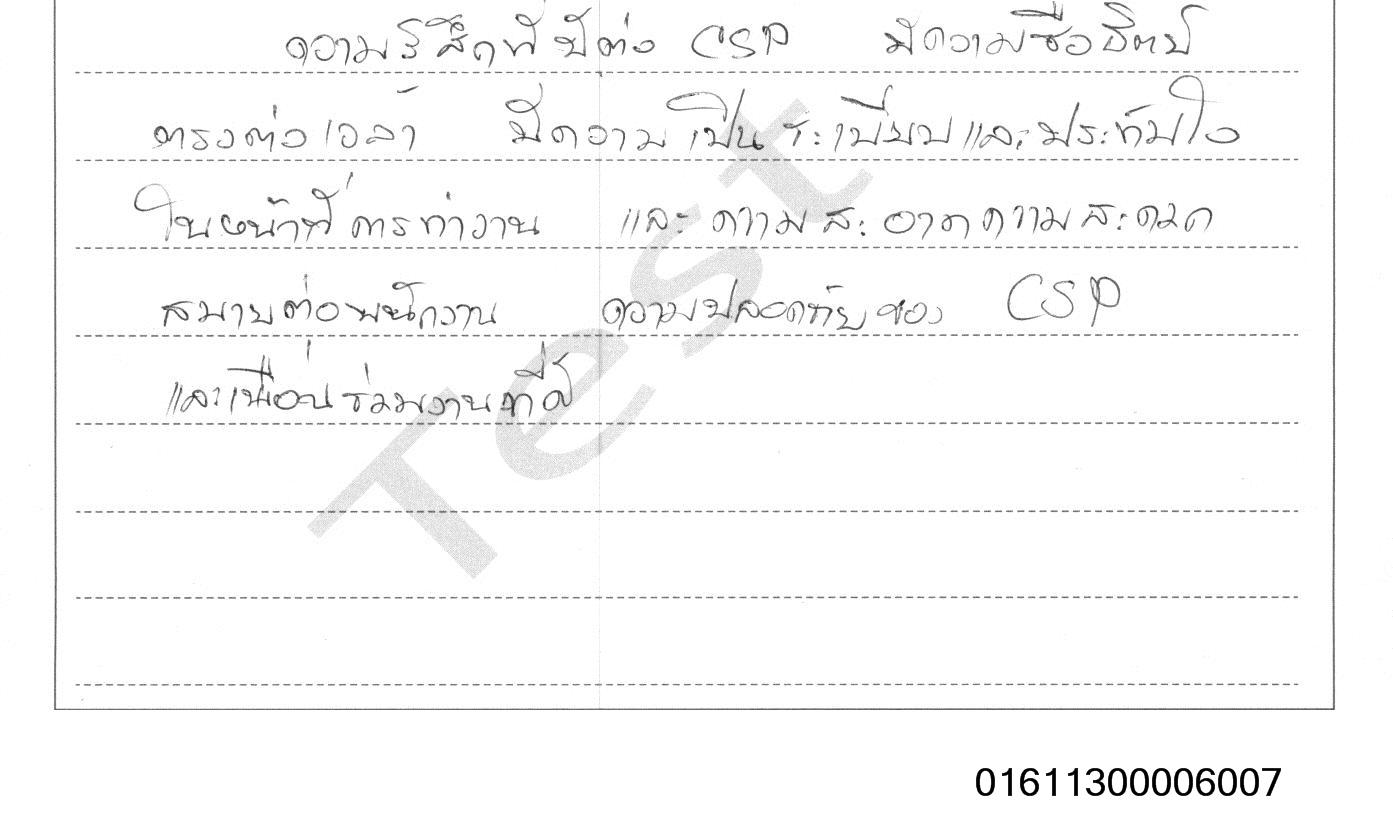 ความรู้สึกที่มีต่อ CSP มีความซื่อสัตย์
ตรงต่อเวลา มีความเป็นระเบียบและประทับใจ
ในหน้าที่การทำงาน และความสะอาดความสะดวก
สบายต่อพนักงาน ความปลอดภัยของ CSP
และเพื่อนร่วมงานที่ดี
Test
01611300006007